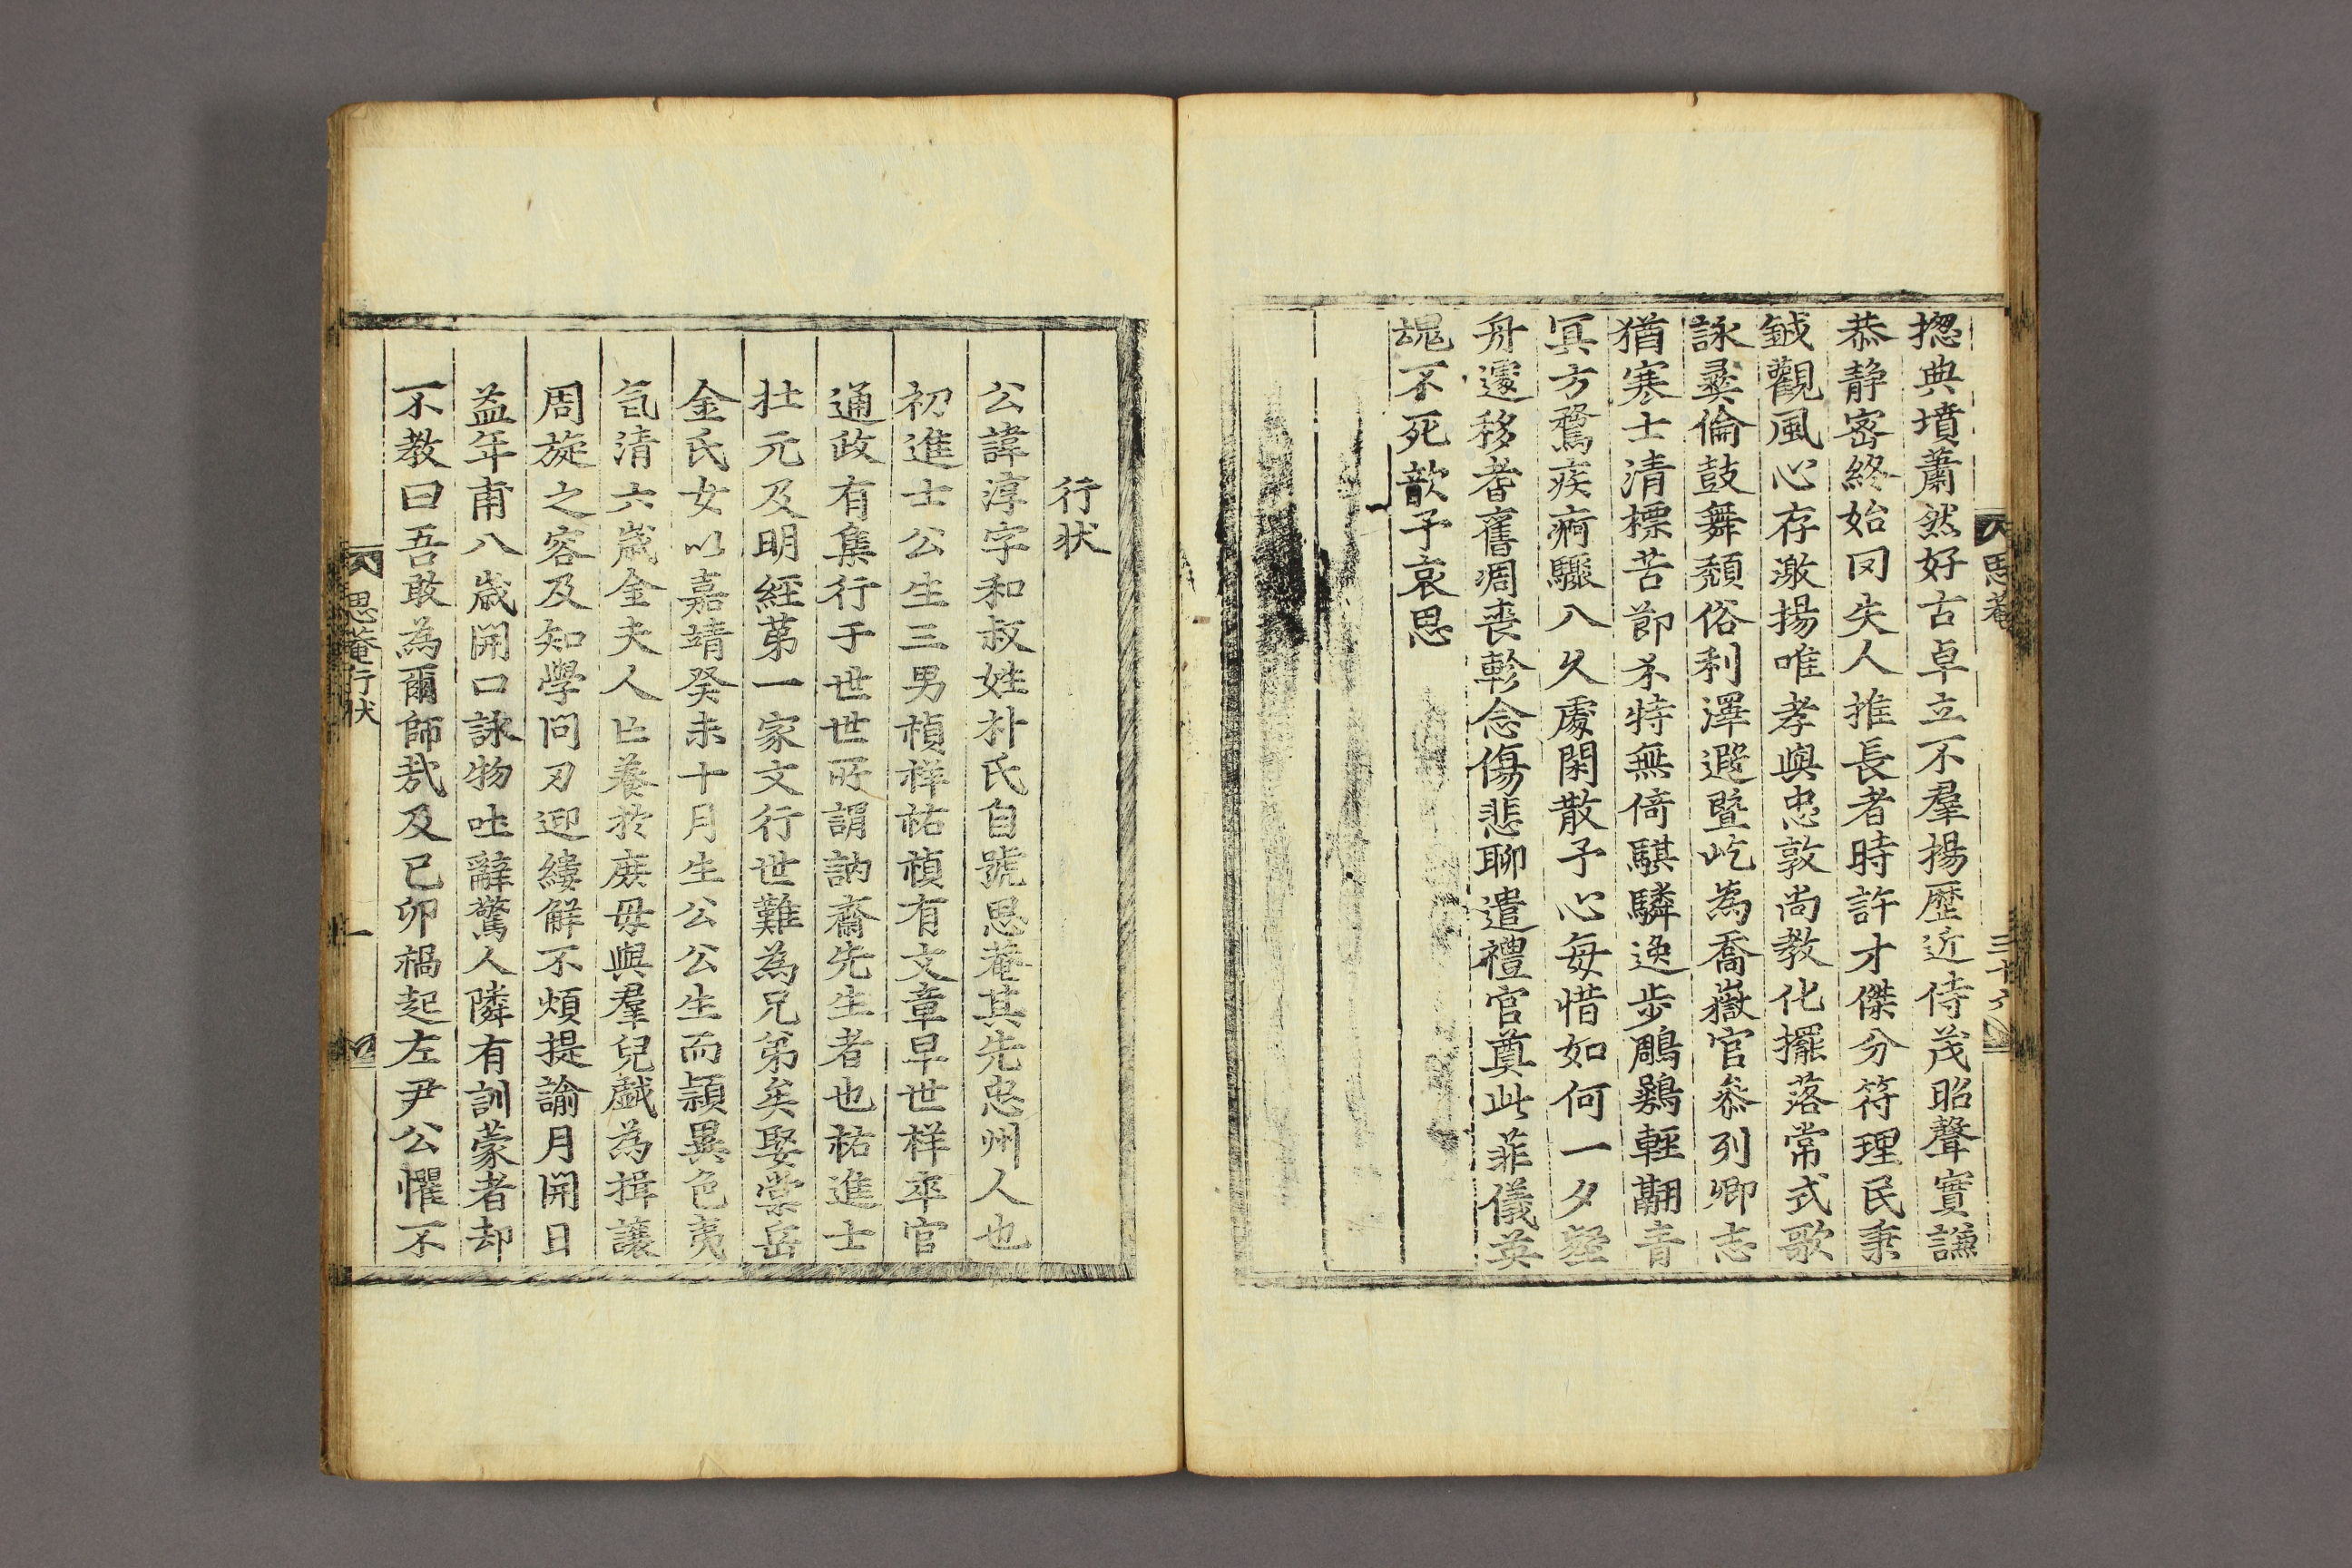 思菴 三十六
揔典墳蕭然好古卓立不羣揚歷近侍茂昭聲實謙
恭静密終始罔失人推長者時許才傑分符理民秉
鉞觀風心存激揚唯孝與忠敦尚敎化擺落常式歌
詠彛倫鼓舞頹俗利澤遐曁屹爲喬嶽官叅列卿志
猶寒士清標苦節夲特無倚騏驎逸步鵰鶚輕翻青
冥方騖疾痾驟入久處閑散予心每惜如何一夕壑
舟遽移耆舊凋喪軫念傷悲聊遣禮官奠此菲儀英
魂不死歆予哀思
行状
公諱淳字和叔姓朴氏自號思菴其先忠州人也
初進士公生三男楨祥祐楨有文章早世祥卒官
通政有集行于世世所謂訥齋先生者也祐進士
壮元及明經第一家文行世難為兄弟矣娶棠岳
金氏女以嘉靖癸未十月生公公生而頴異色夷
氣清六歲金夫人亡養於庶母與羣兒戱為揖讓
周旋之容及知學問刃迎縷解不煩提諭月開日
益年甫八歲開口詠物吐辭驚人隣有訓蒙者却
不教曰吾敢為爾師哉及己卯禍起左尹公懼不
思菴行状 一